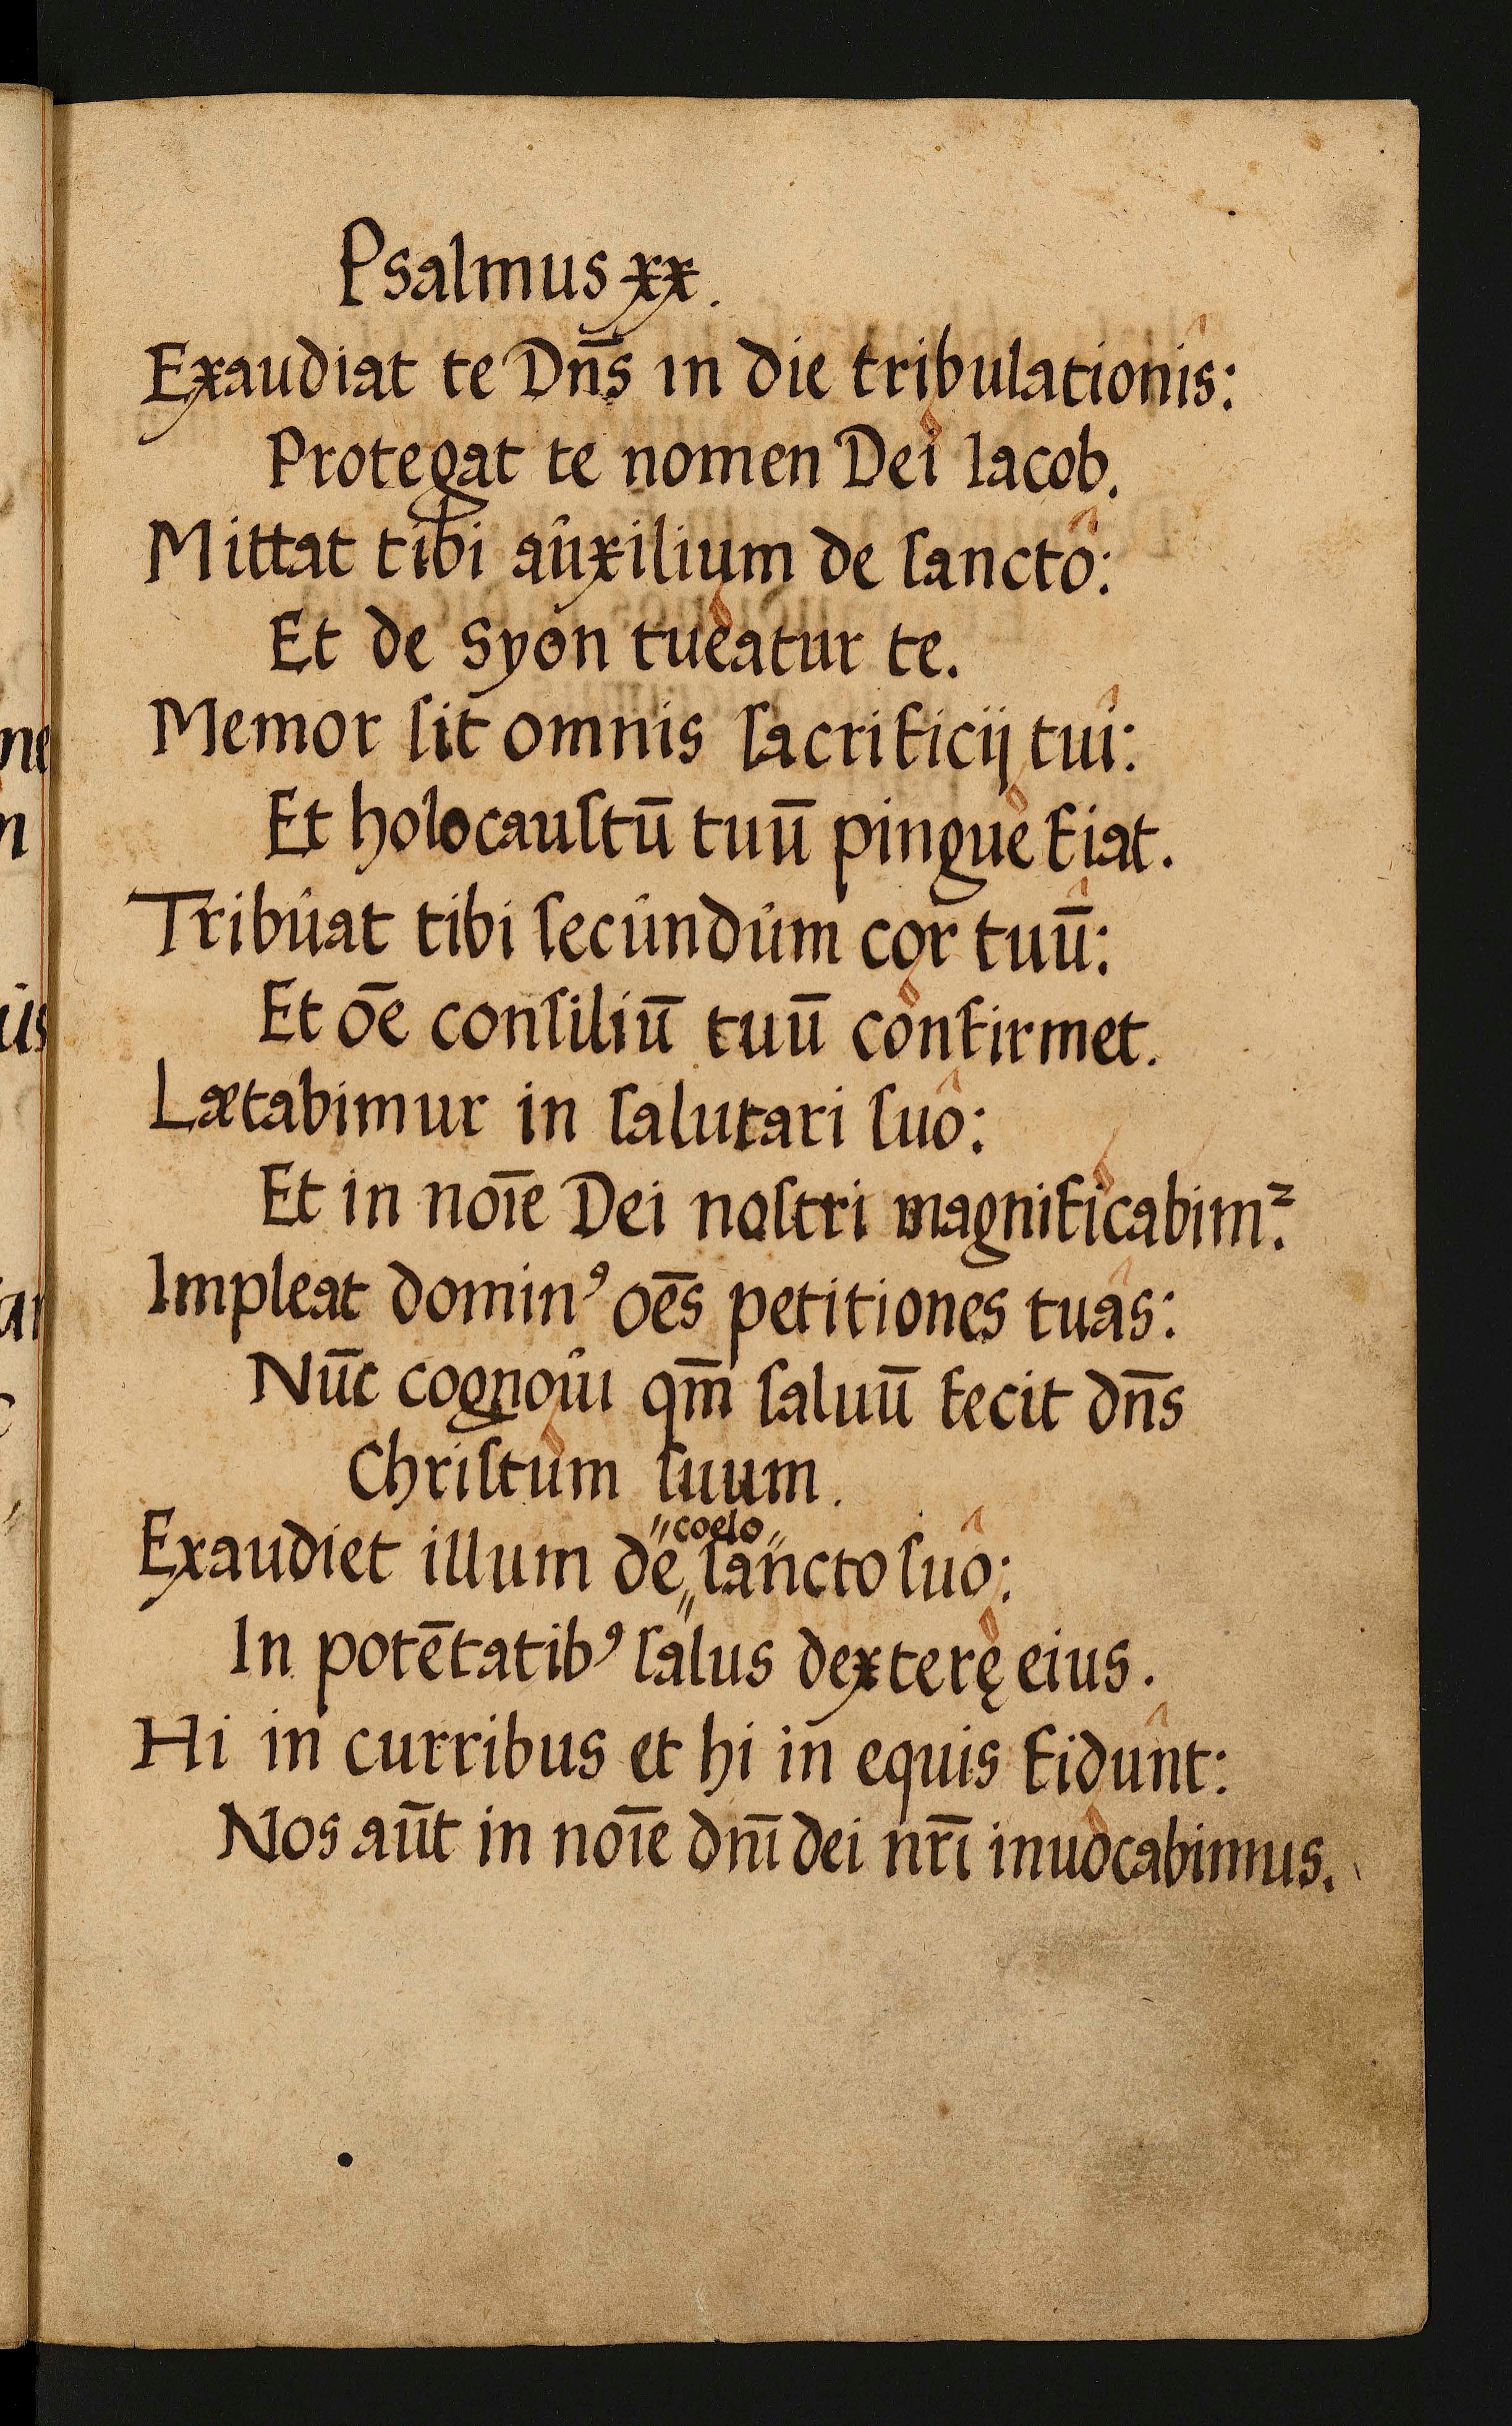 Psalmus xx.
Exaudiat te Dn̄s in die tribulationis:
Protegat te nomen Dei Iacob.
Mittat tibi aûxilium de ſancto:
Et de Syon tueatur te.
Memor ſit omnis ſacrificij tui:
Et holocauſtū tuū pingue fiat.
Tribûat tibi ſecûndûm cor tuū:
Et ōe conſiliū tuū confirmet.
Lætabimur in ſalutari ſuo:
Et in noīe Dei noſtri magnificabimꝰ.
Impleat dominꝰ oēs petitiones tuas:
Nūc cognoûi qm̄ ſaluū fecit dn̄s
Chriſtum ſuum.
"coelo"
Exaudiet illum de„ſancto ſuo:
In potētatibꝰ ſalus dexterę eius.
Hi in curribus et hi in equis fidunt:
Nos aūt in noīe dnī dei nrī inuocabimus.
ne
n
ûs